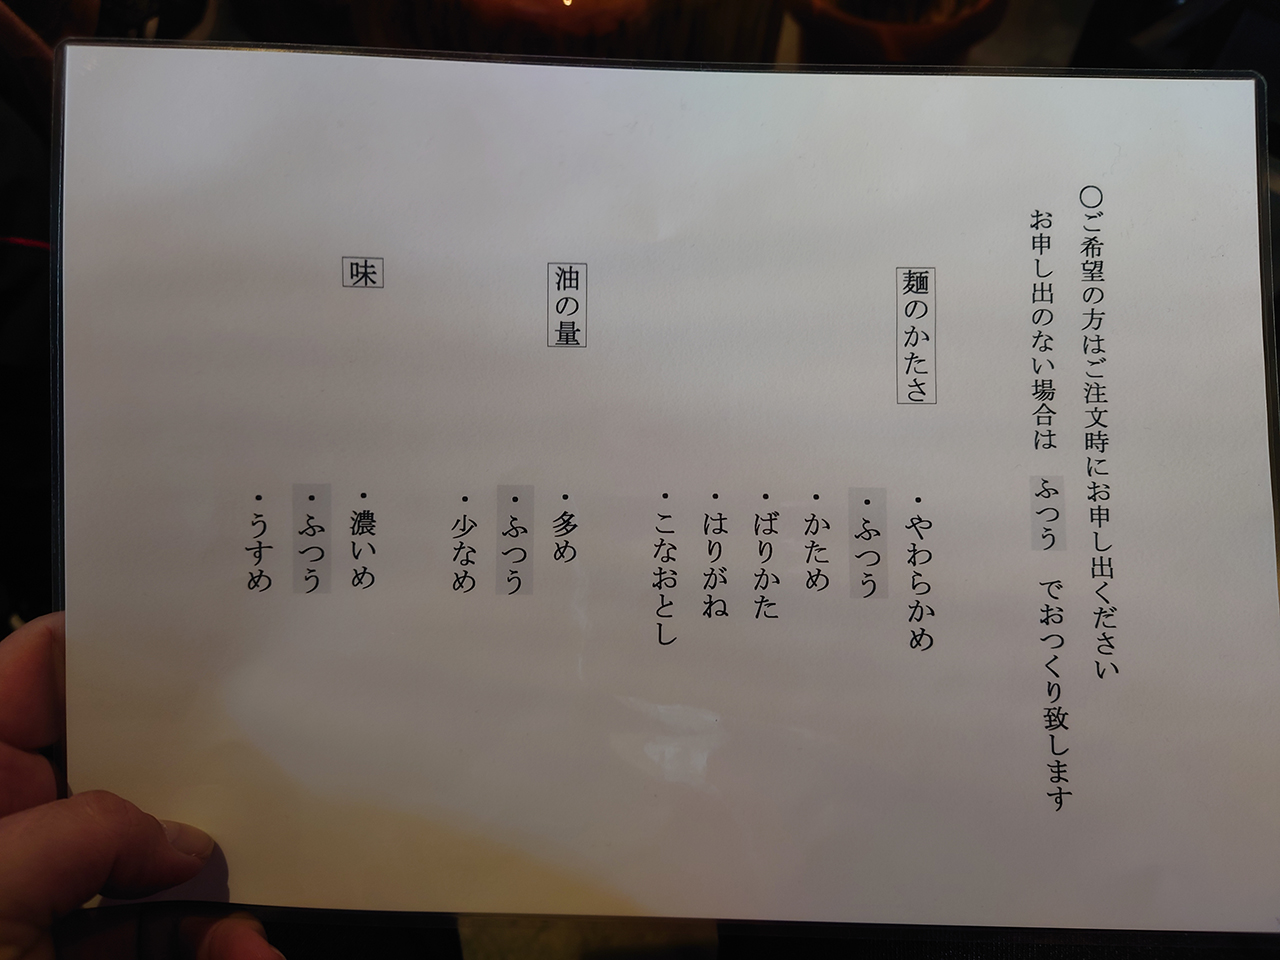 〇ご希望の方はご注文時にお申し出ください
お申し出のない場合は ふつう でおつくり致します
麺のかたさ
・やわらかめ
・ふつう
・かため
・ばりかた
・はりがね
・こなおとし
油の量
・多め
・ふつう
・少なめ
味
・濃いめ
・ふつう
・うすめ